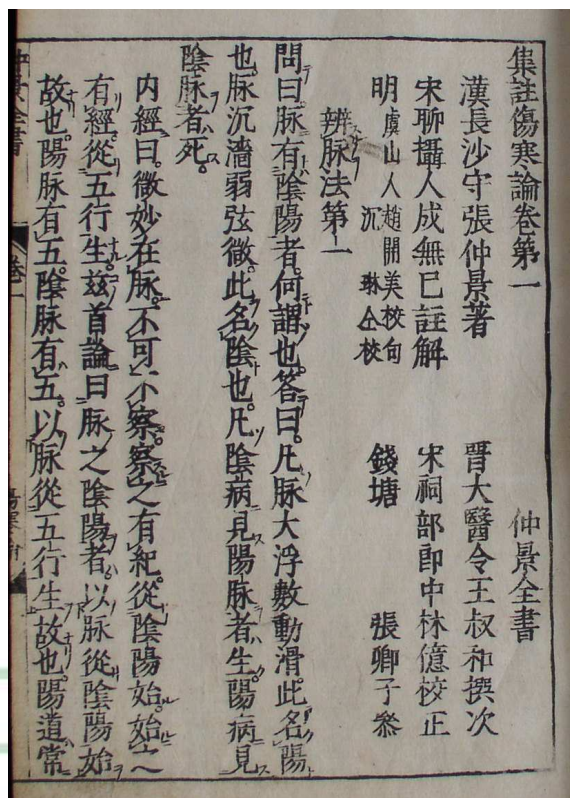 集註傷寒論卷第一
仲景全書
漢長沙守張仲景著
晋大醫令王叔和撰次
宋聊攝人成無已註解
宋祠部郎中林億校正
明虞山人趙開美校句
沉琳仝校
錢塘
張卿子參
辨脉法第一
問曰。脉有陰陽者。何謂也。答曰。凡脉大浮數動滑。此名陽
也。脉沉濇弱弦微。此名陰也。凡陰病見陽脉者生。陽病見
陰脉者死。
内經曰。微妙在脉。不可不察。察之有紀。從陰陽始。始之
有經。從五行生。兹首論曰。脉之陰陽者。以脉從陰陽始
故也。陽脉有五。陰脉有五。以脉從五行生故也。陽道常
仲景全書
卷一